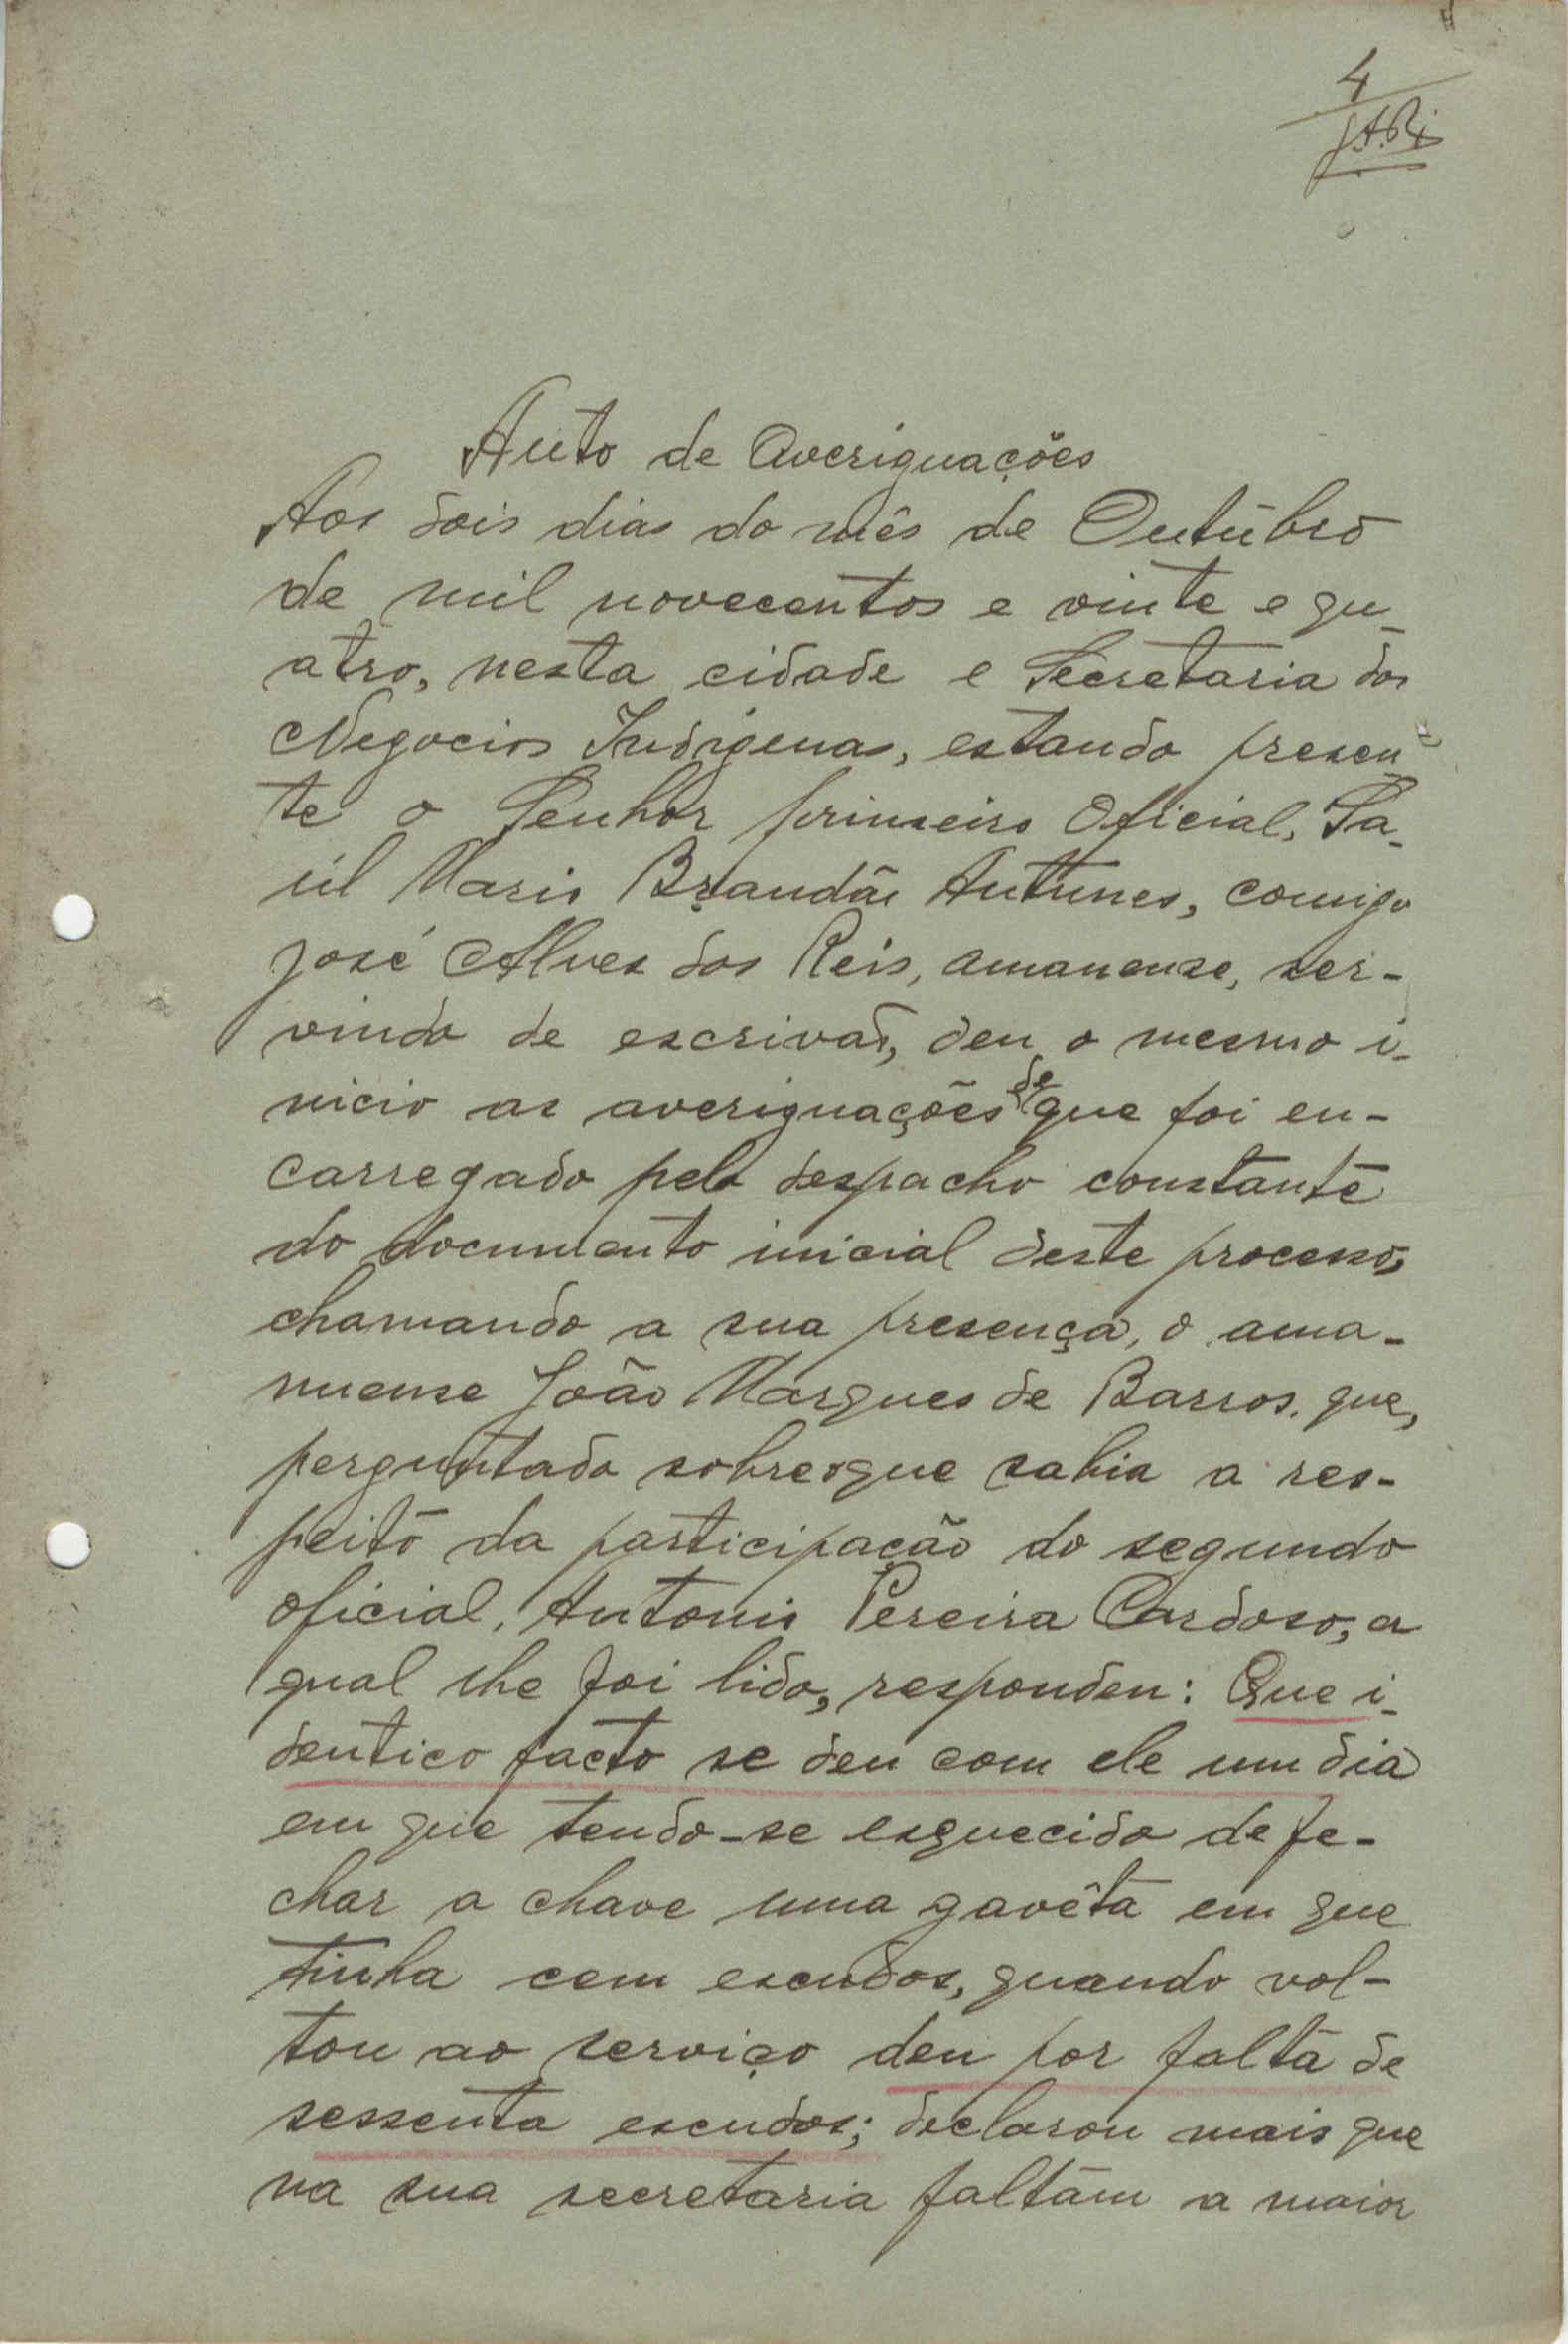 4
J.A.Ri
Auto de Averiguações
Aos dois dias do mês de Outúbro
de mil novecentos e vinte e qu-
atro, nesta cidade e Secretaria dos
Negocios Indigenas, estando presen-
te o Senhor primeiro Oficial, Sa-
úl Mario Brandão Antunes, comigo
José Alves dos Reis, amanense, ser-
vindo de escrivão, deu o mesmo i-
nicio as averiguações de que foi en-
carregado pelo despacho constante
do documento inicial deste processo,
chamando a sua presença, o ama-
nuense João Marques de Barros, que,
perguntado sobre o que sabia a res-
peito da participação do segundo
oficial, Antonio Pereira Cardoso, a
qual lhe foi lida, respondeu: Que i-
dentico facto se deu com ele um dia
em que tendo-se esquecido de fe-
char a chave uma gavêta em que
tinha cem escudos, quando vol-
tou ao serviço deu por falta de
sessenta escudos; declarou mais que
na sua secretaria faltam a maior